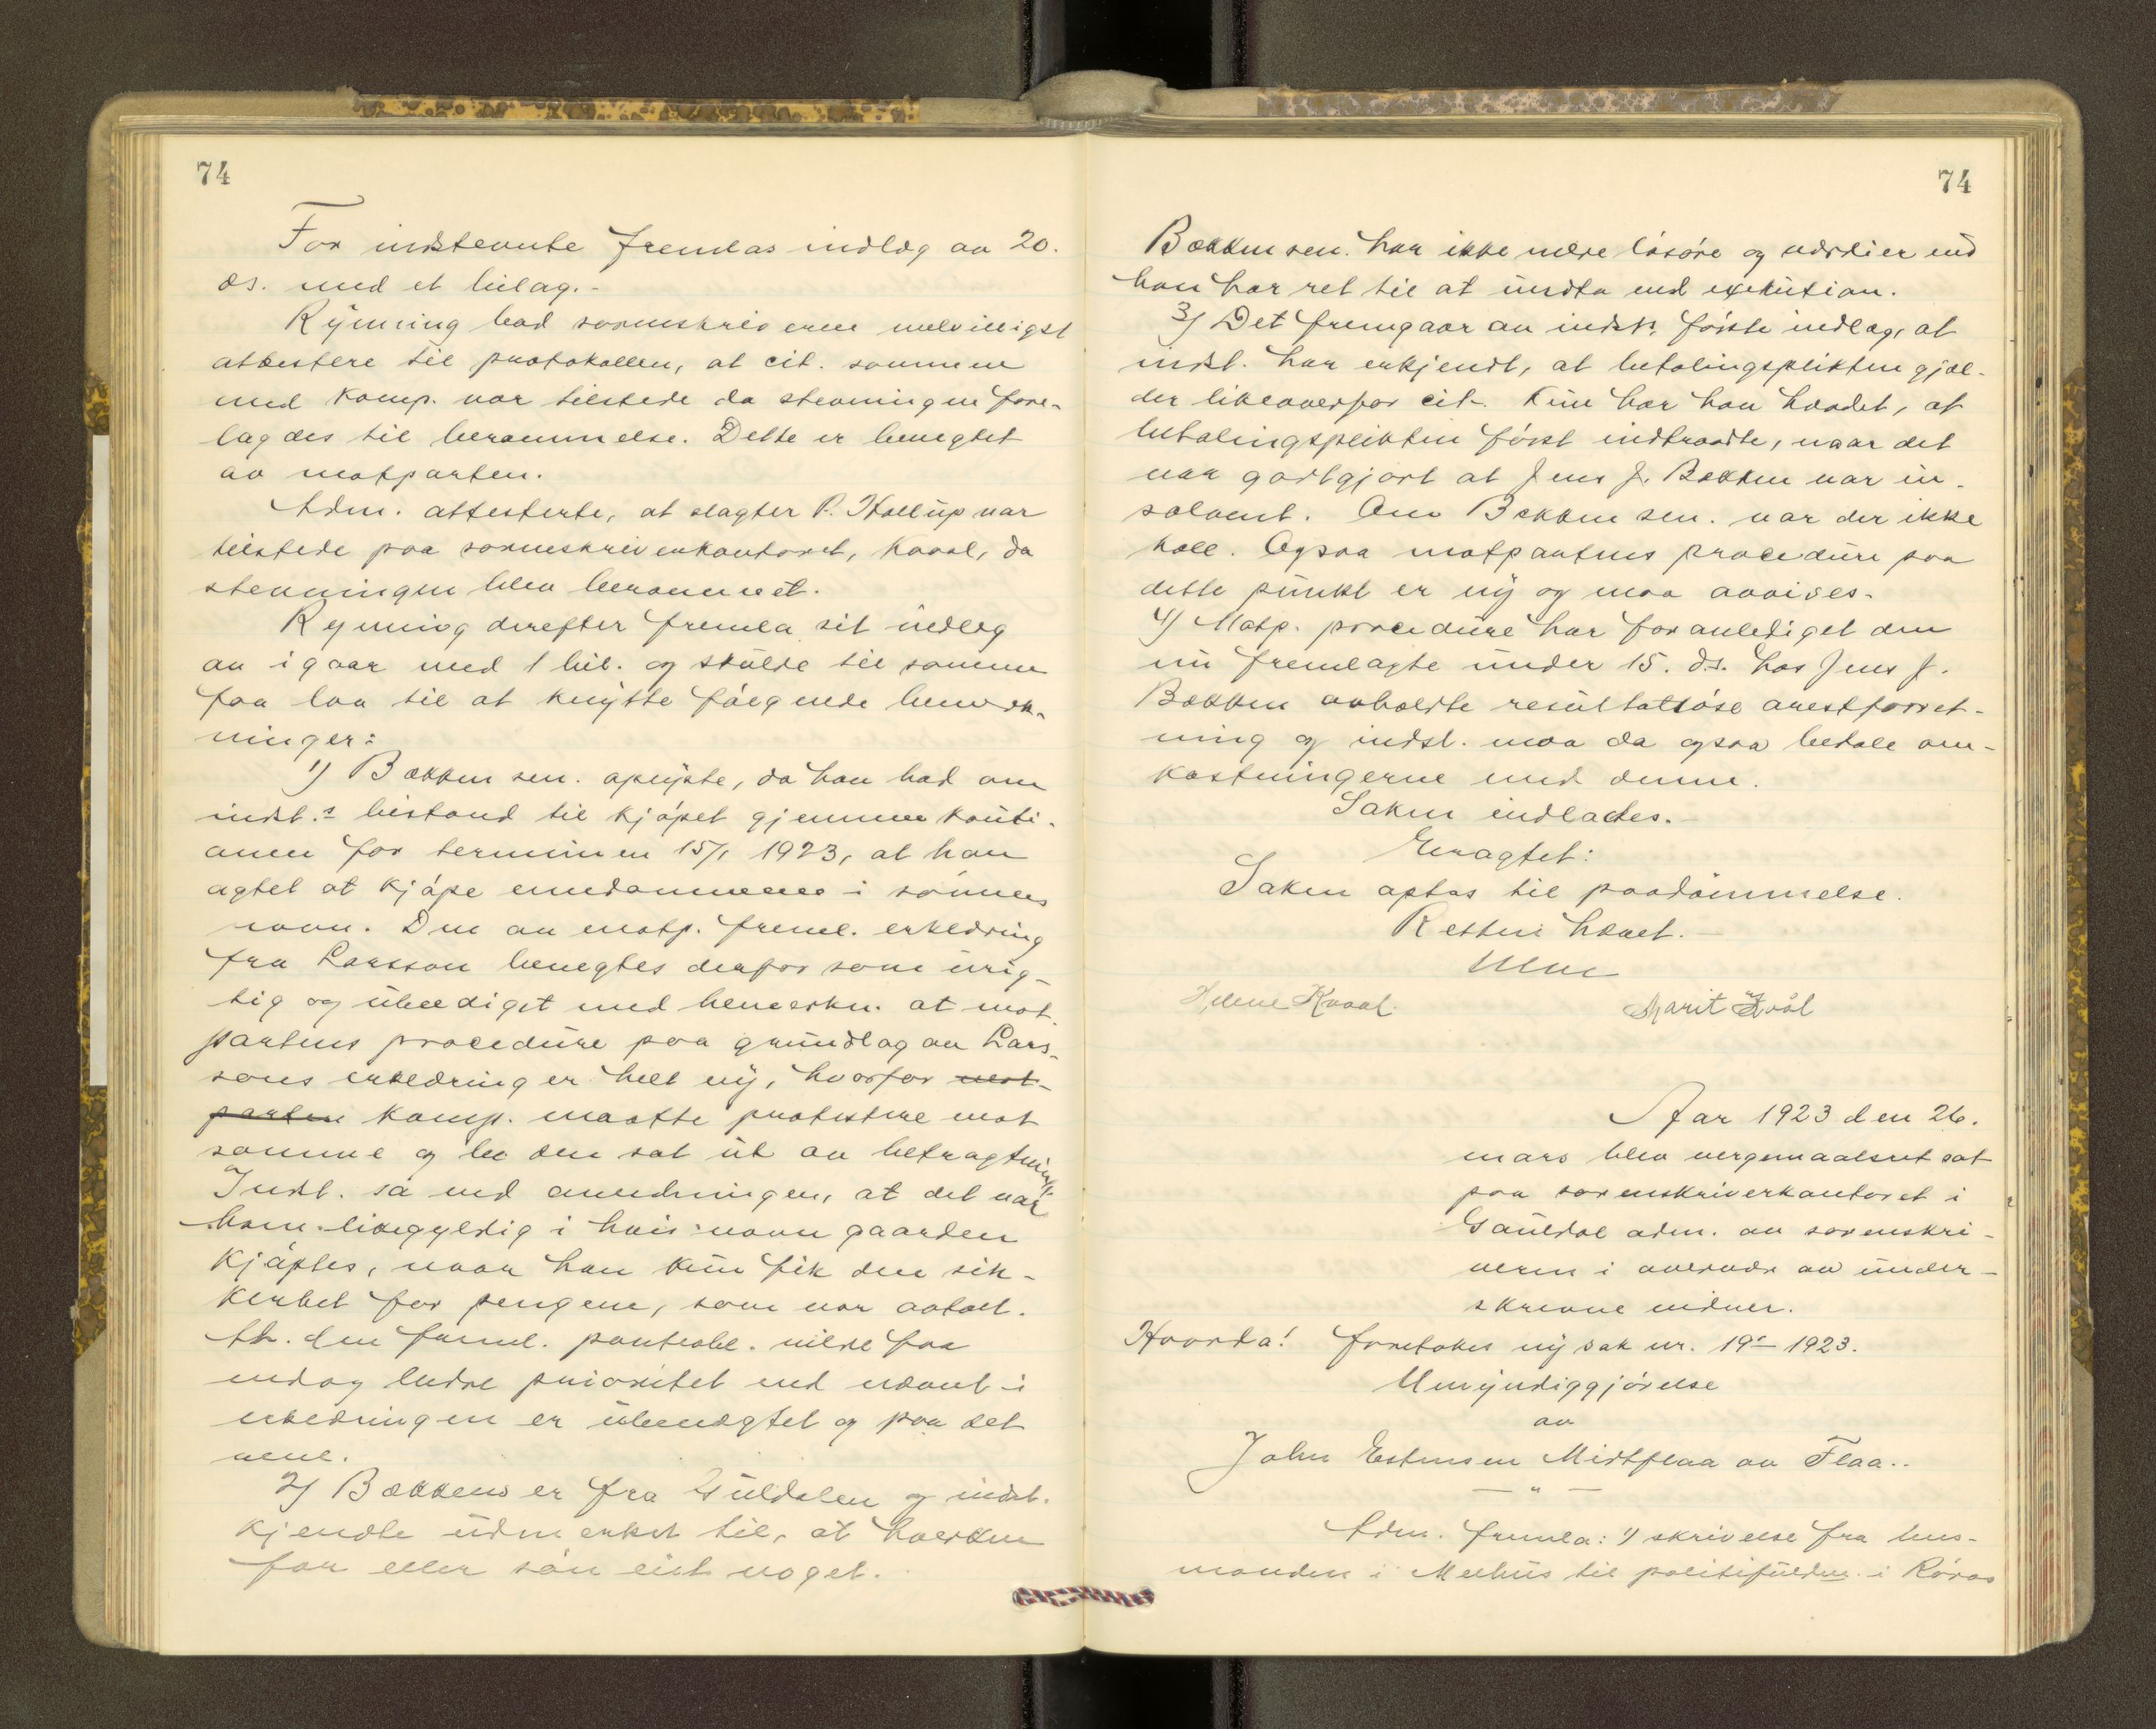 74
For indstevnte fremlas indlæg av 20.
ds. med et bilag.-
Rynning bad sorenskriveren velvilligst
attestere til protokollen, at cit. sammen
med komp. var tilstede da stevningen fore-
lagdes til berammelse. Dette er benegtet
av motparten.
Adm. attesterte, at slagter P. Hollup var
tilstede paa sorenskriverkontoret, Kvaal, da
stevningen blev berammet.
Rynning derefter fremla sit indlæg
av igaar med 1 bil. og skulde til samme
faa lov til at knytte følgende bemerk-
ninger:
1) Bækken sen. oplyste, da han bad om
indst.s bistand til kjøpet gjennem kauti-
onen for terminen 15/1 1923, at han
agtet at kjøpe eiendommene i sønnens
navn. Den av motp. freml. erklæring
fra Larsson benegtes derfor som urig-
tig og ubeediget med bemerkn. at mot-
partens procedure paa grundlag av Lars-
sons erklæring er helt ny, hvorfor mot-
parten komp. maatte protestere mot
samme og be den sat ut av betragtning.
Indst. sa ved anledningen, at det var
ham likegyldig i hvis navn gaarden
kjøptes, naar han kun fik den sik-
kerhet for pengene, som var avtalt.
At den freml. panteobl. vilde faa
endog bedre prioritet end nævnt i
erklæringen er ubenægtet og paa det
rene.
2) Bækkens er fra Guldalen og indst.
kjendte utmerket til, at hverken
far eller søn eiet noget.
74
Bækken sen. har ikke mere løsøre og værdier end
han har ret til at undta ved exekution.
3) Det fremgaar av indst. første indlæg, at
indst. har erkjendt, at betalingsplikten gjæl-
der likeoverfor cit. Kun har han hævdet, at
betalingsplikten først indtraadte, naar det
var godtgjort at Jens J. Bækken var in-
solvent. Om Bækken sen. var der ikke
tale. Ogsaa motpartens procedure paa
dette punkt er ny og maa avvises.
4) Motp. procedure har foranlediget den
nu fremlagte under 15. ds. hos Jens J.
Bækken avholdte resultatløse arestforret-
ning og indst. maa da ogsaa betale om-
kostningerne med denne.
Saken indlodes.-
Eragtet:
Saken optas til paadømmelse.
Retten hævet.-
Helene Kvaal. Marit Kvål
Aar 1923 den 26.
mars blev vergemaalsret sat
paa sorenskriverkontoret i
Gauldal adm. av sorenskri-
veren i overvær av under-
skrevne vidner.
Hvorda! foretokes ny sak nr. 19- 1923.
Umyndiggjørelse
av
John Estensen Midtflaa av Flaa..
— " —
Adm. fremla: 1) skrivelse fra lens-
manden i Melhus til politifuldm. i Røros